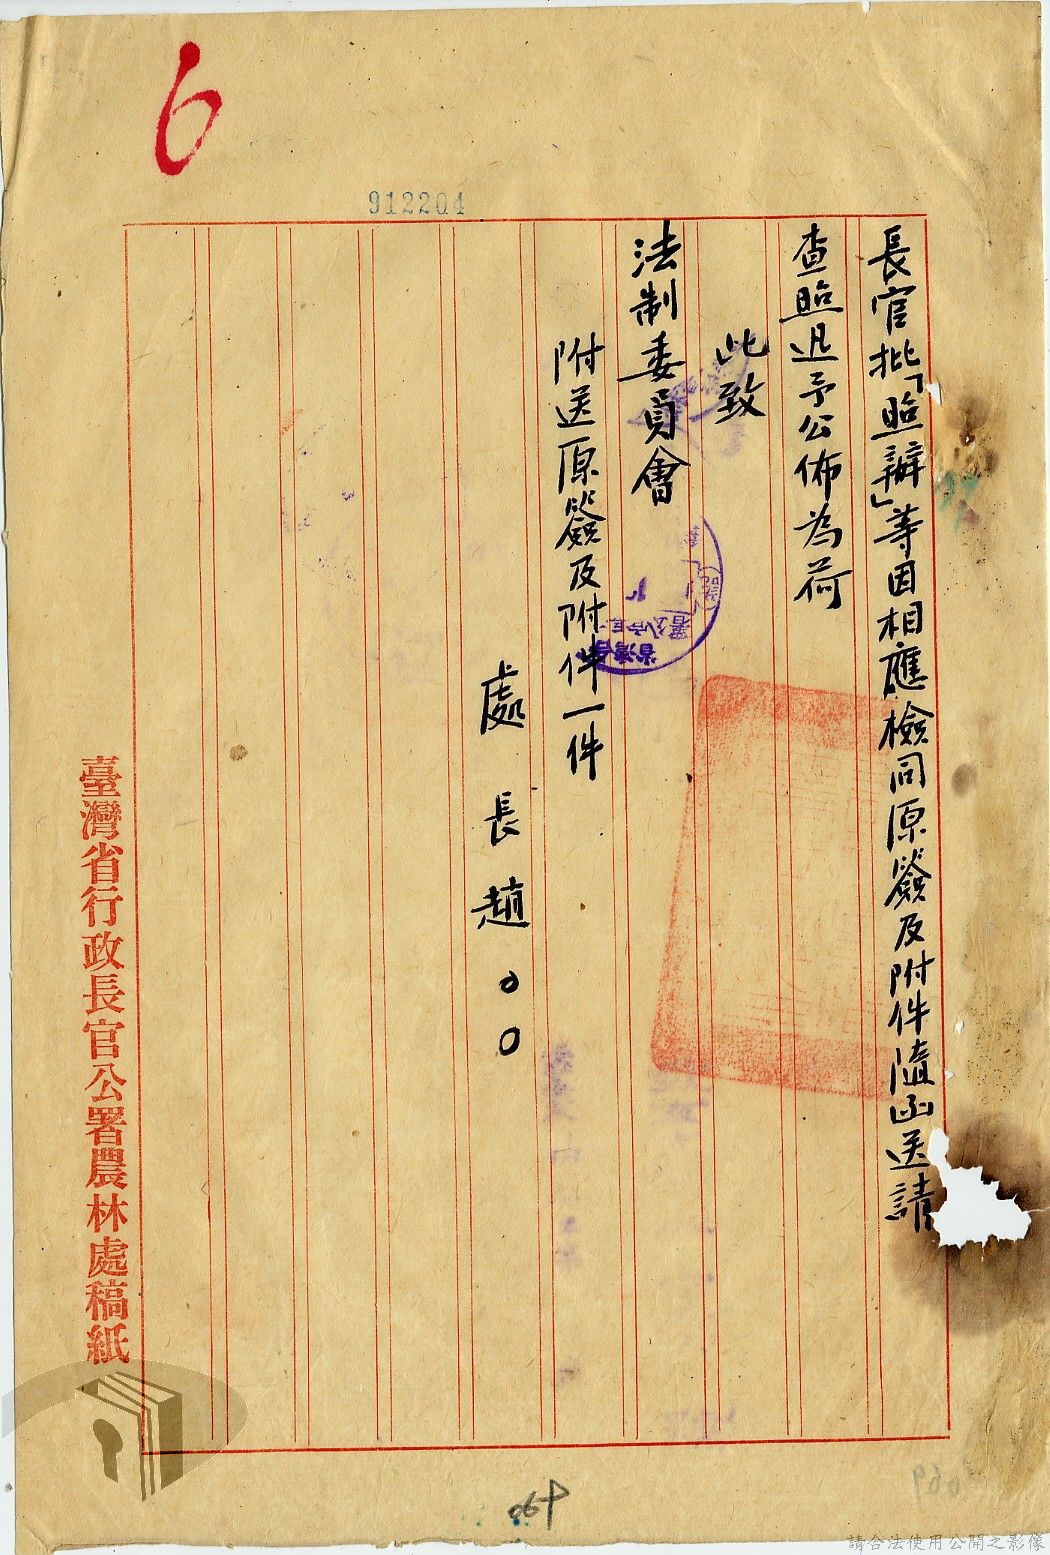 6
912204
長官批「照辦」等因相應檢同原簽及附件隨函送請
查照迅予公佈為荷
此致
法制委員會
附送原簽及附件一件
處長趙〇〇
臺灣省行政長官公署農林處稿紙
請合法使用公開之影像